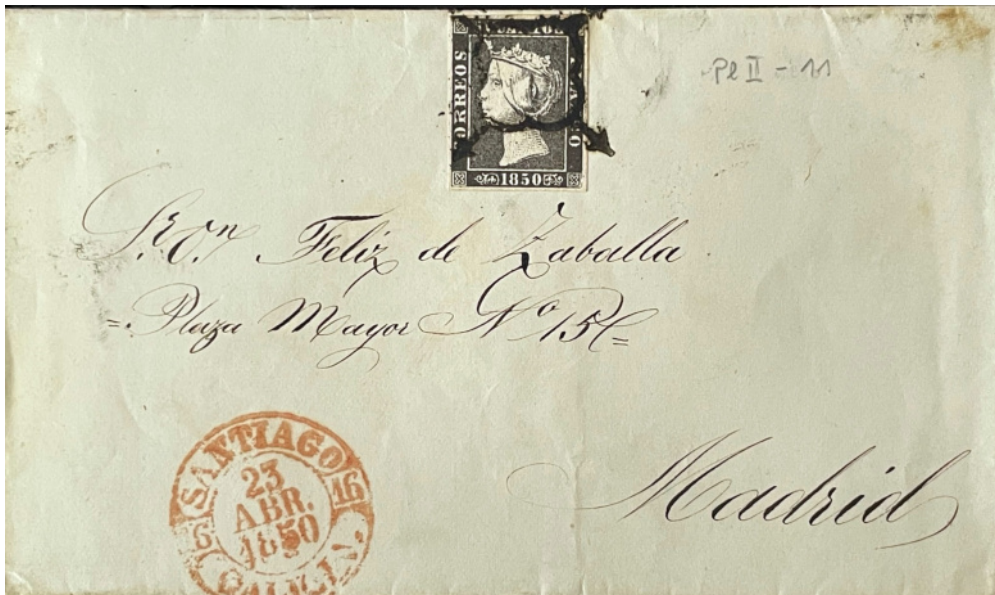 Pl II - 11
CORREOS
1850
Sr. Dn. Feliz de Zaballa
= Plaza Mayor No 15 =
Madrid
SANTIAGO
16
23
ABR.
1850
GALICIA.